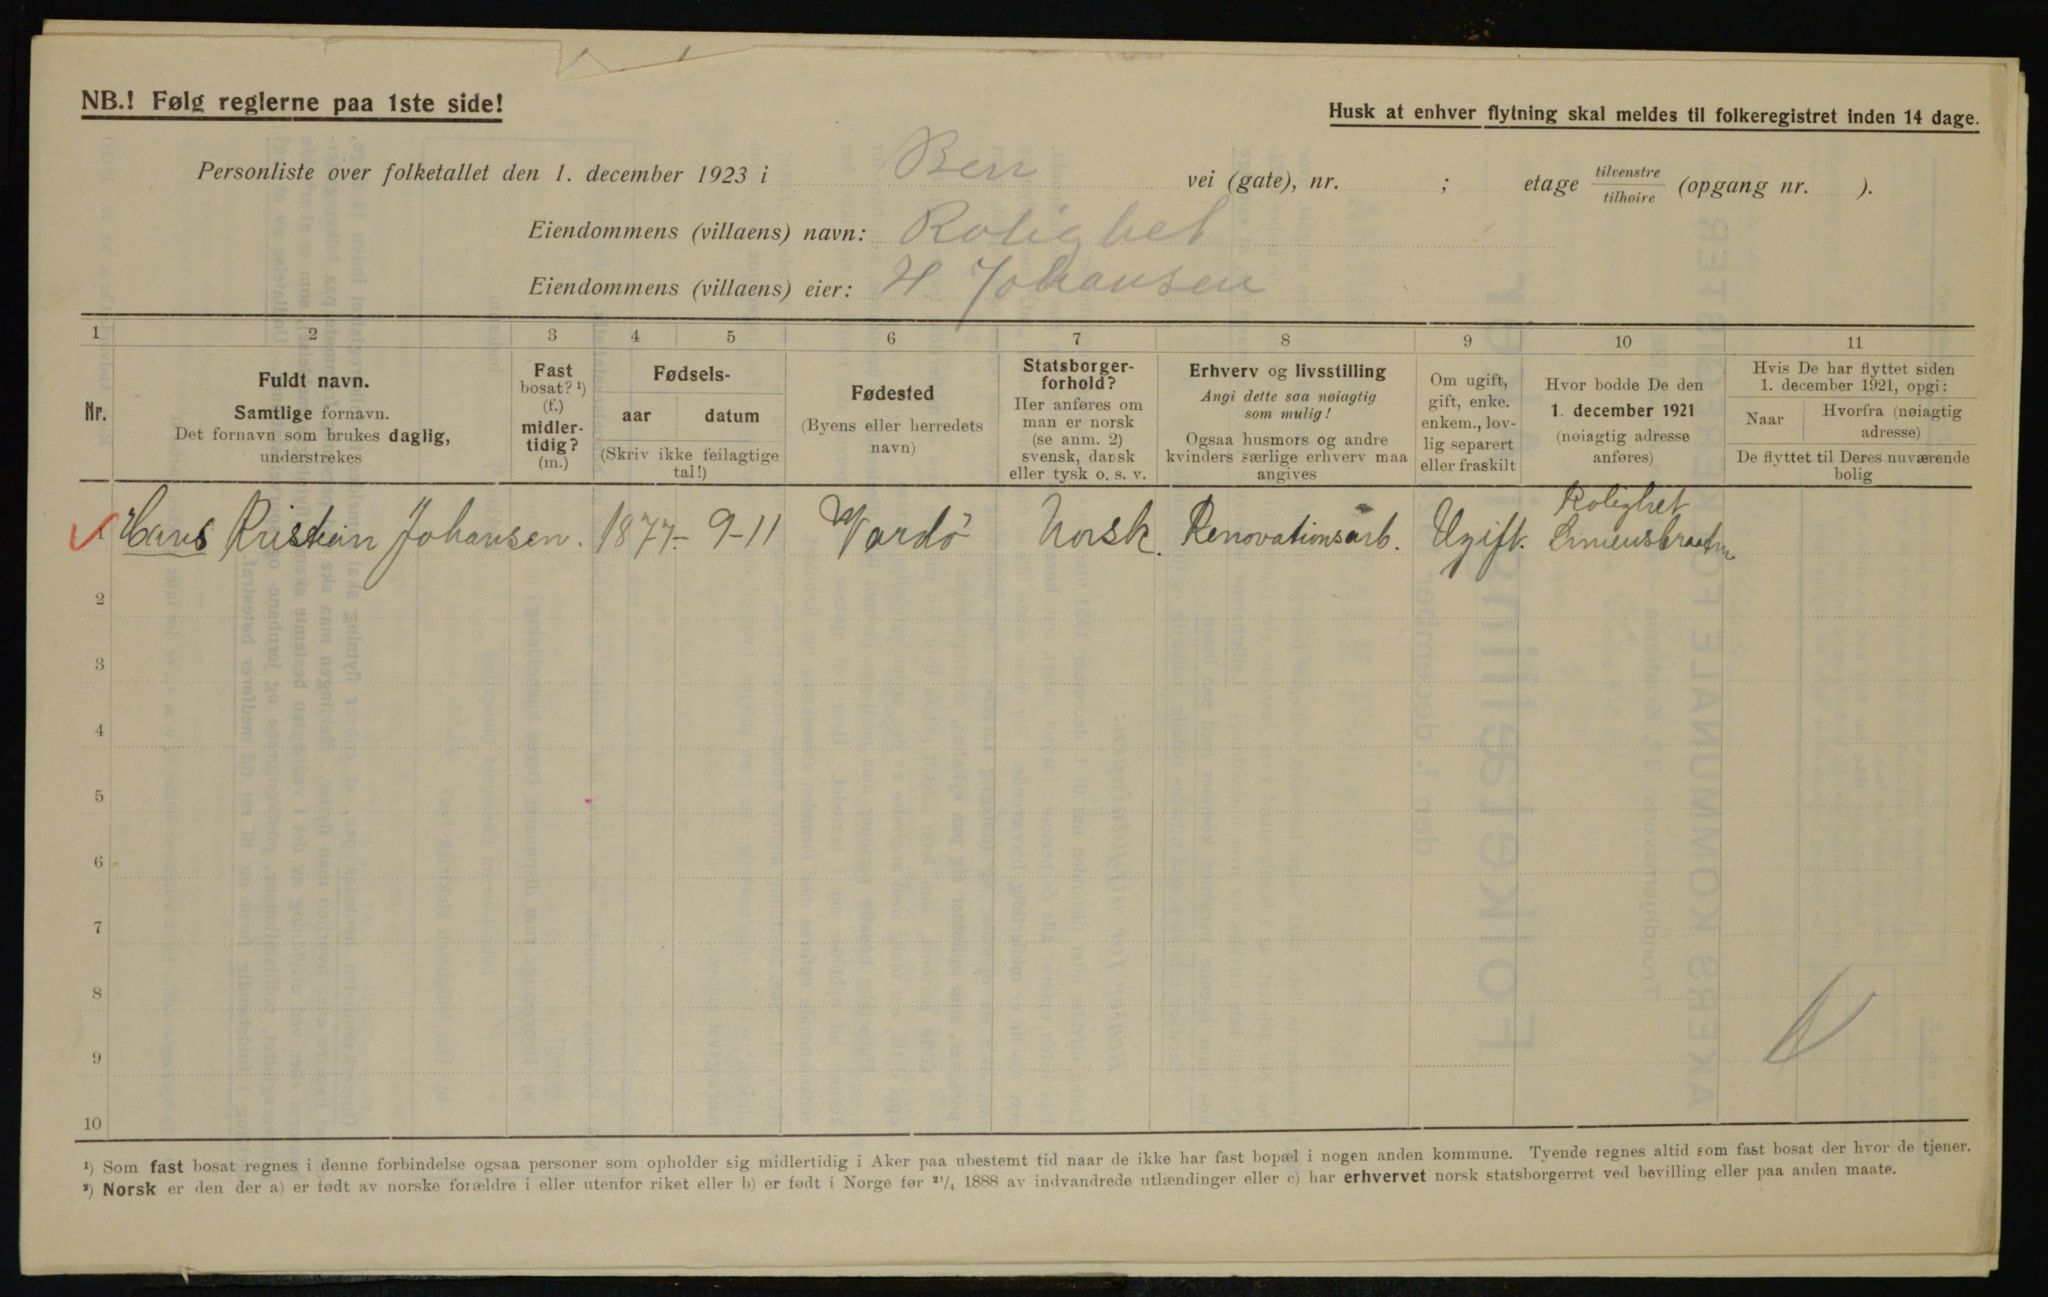 NB.! Følg reglerne paa 1ste side!
Husk at enhver flytning skal meldes til folkeregistret inden 14 dage.
Personliste over folketallet den 1. december 1923 i vei (gate), nr. ; etage tilvenstre tilhøire (opgang nr. ).
Eiendommens (villaens) navn: Rolighet
Eiendommens (villaens) eier: H. Johansen
1 2 3 4 5 6 7 8 9 10 11
Nr.
Fuldt navn.
Samtlige fornavn.
Det fornavn som brukes daglig,
understrekes
Fast
bosat? ¹)
(f.)
midler-
tidig?
(m.)
Fødsels-
aar datum
(Skriv ikke feilagtige
tal!)
Fødested
(Byens eller herredets
navn)
Statsborger-
forhold?
Her anføres om
man er norsk
(se anm. 2)
svensk, dansk
eller tysk o. s. v.
Erhverv og livsstilling
Angi dette saa nøiagtig
som mulig!
Ogsaa husmors og andre
kvinders særlige erhverv maa
angives
Om ugift,
gift, enke.
enkem., lov-
lig separert
eller fraskilt
Hvor bodde De den
1. december 1921
(nøiagtig adresse
anføres)
Hvis De har flyttet siden
1. december 1921, opgi:
Naar
Hvorfra (nøiagtig
adresse)
De flyttet til Deres nuværende
bolig
Rolighet
1 Hans Kristian Johansen. 1877- 9-11 Vardö Norsk. Renovationsarb. Ugift.
2
3
4
5
6
7
8
9
10
¹) Som fast bosat regnes i denne forbindelse ogsaa personer som opholder sig midlertidig i Aker paa ubestemt tid naar de ikke har fast bopæl i nogen anden kommune. Tyende regnes altid som fast bosat der hvor de tjener.
²) Norsk er den der a) er født av norske forældre i eller utenfor riket eller b) er født i Norge før ²¹/₄ 1888 av indvandrede utlændinger eller c) har erhvervet norsk statsborgerret ved bevilling eller paa anden maate.